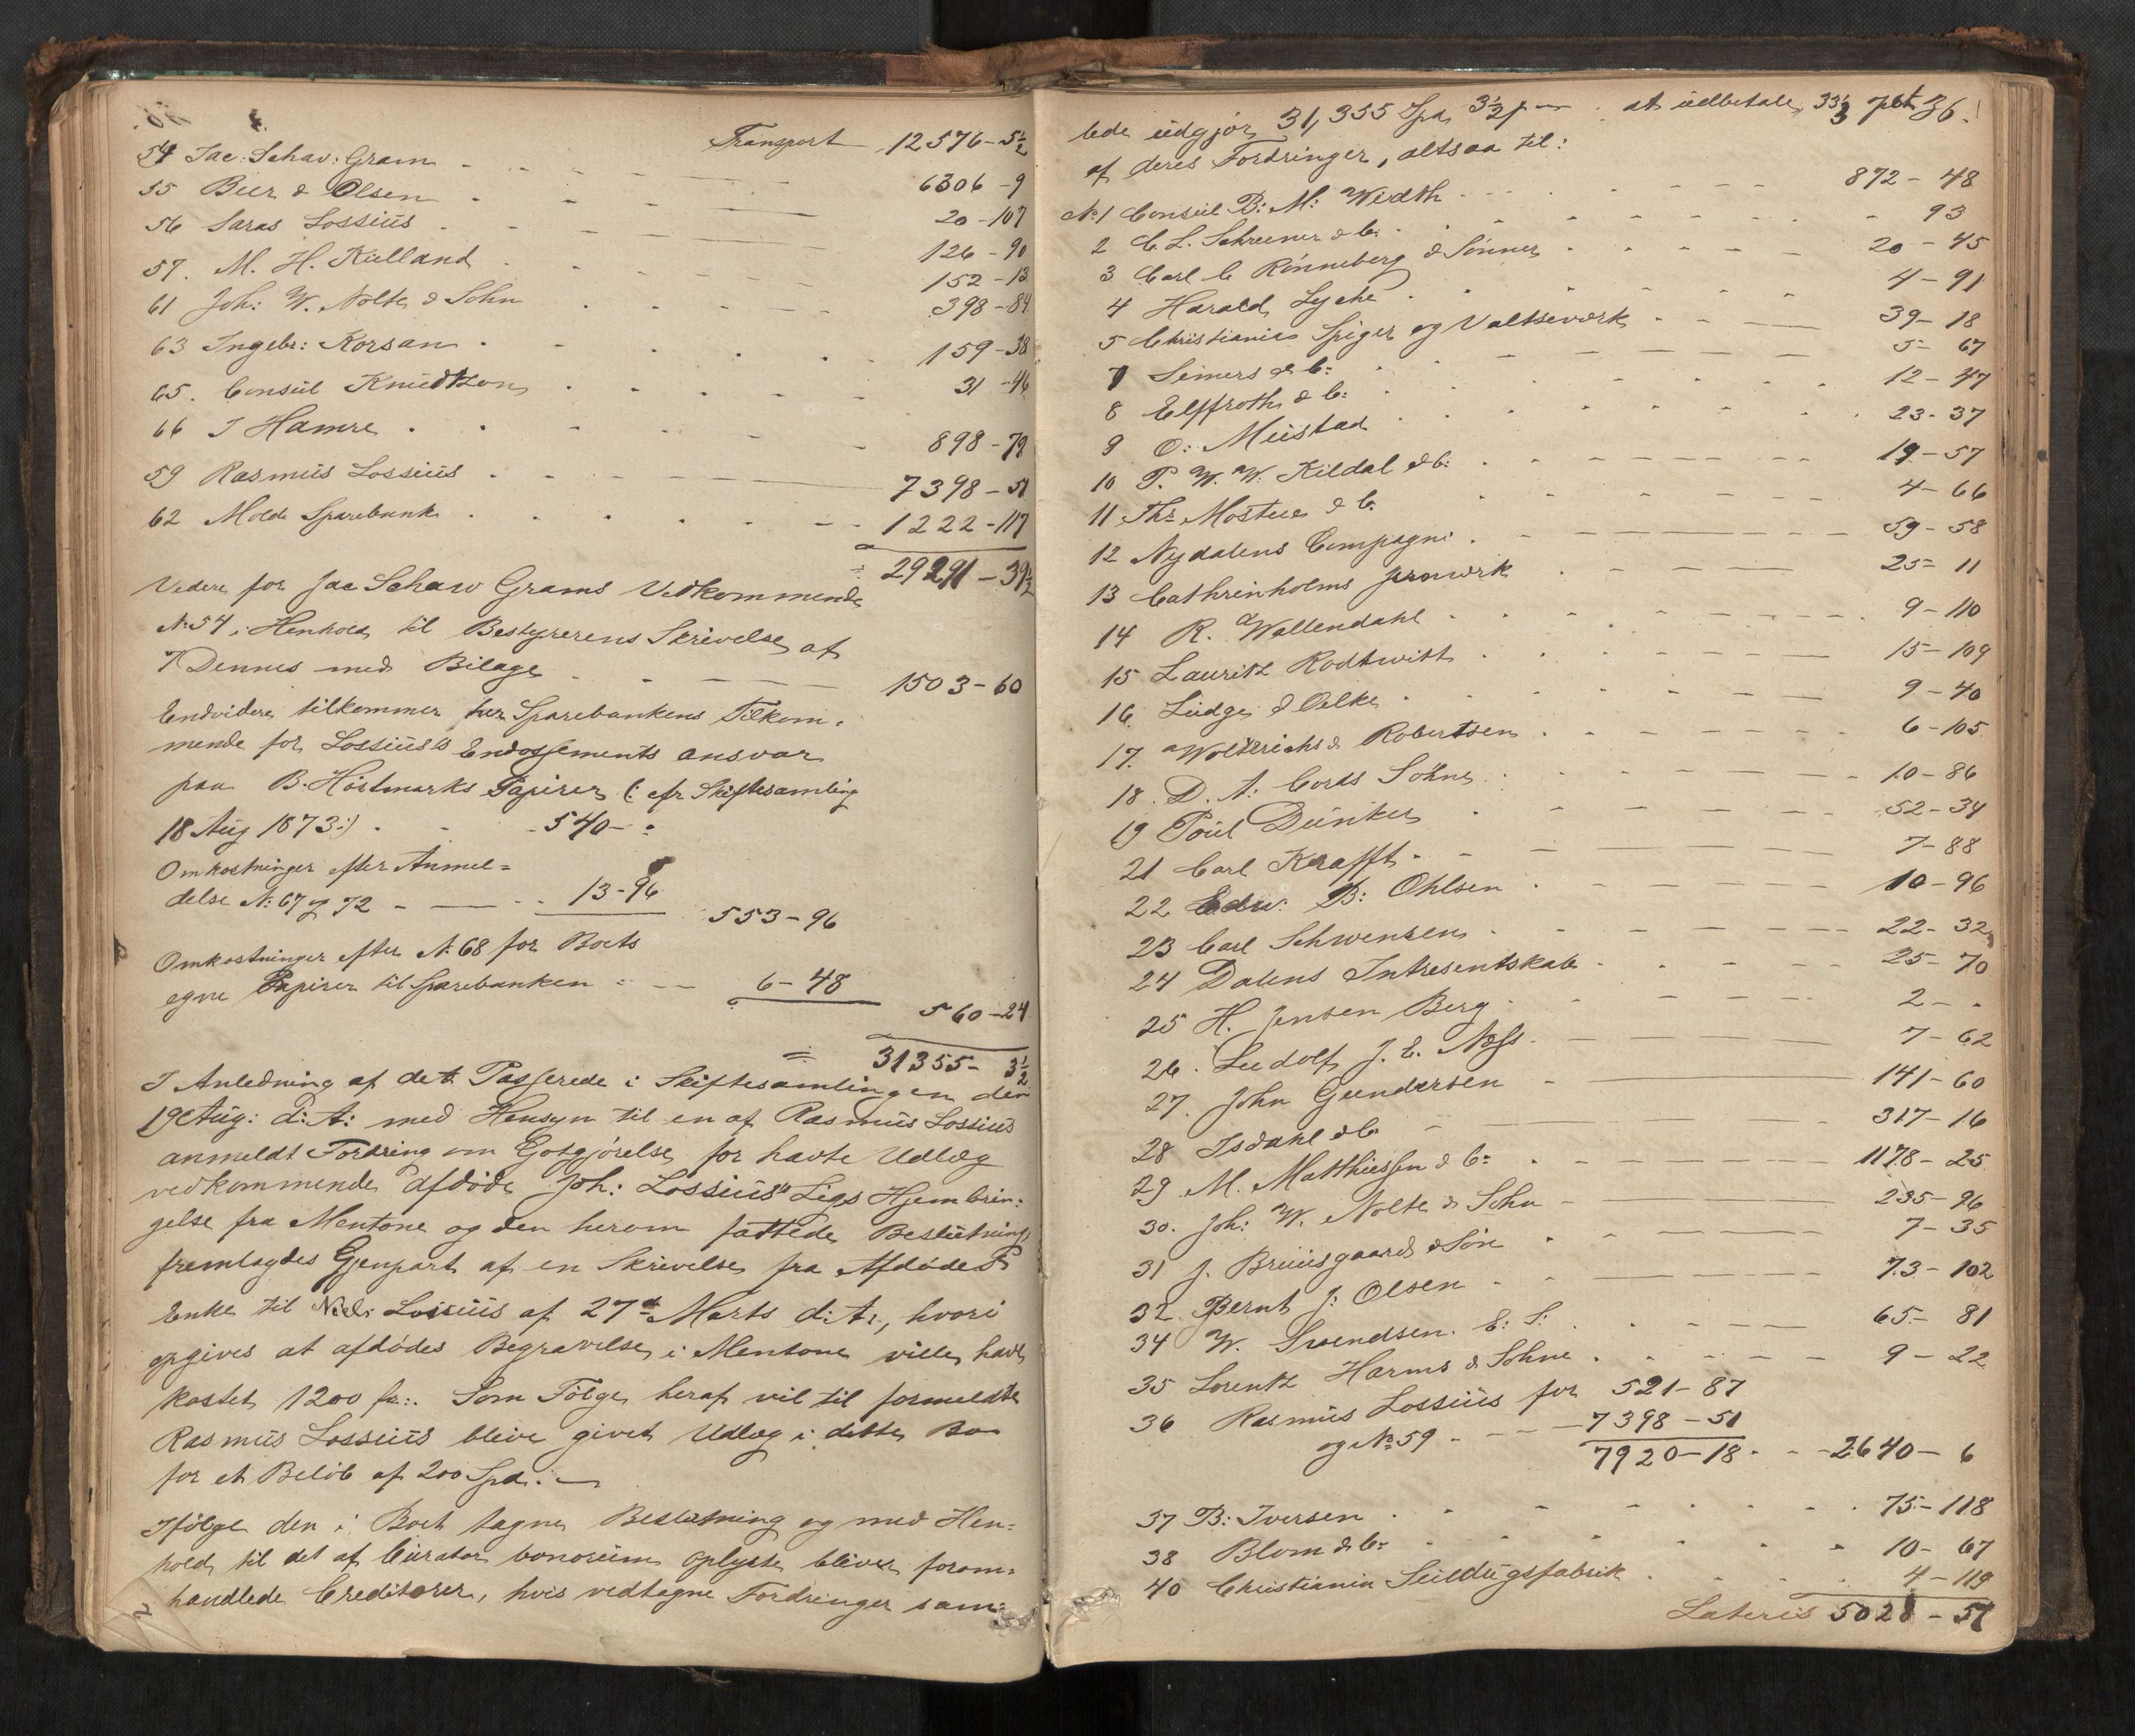 Transport 12576-5½
54 Jac: Schav: Gram 6306-9
55 Beer & Olsen 20-107
56 Saras Lossius 126-90
57. M. H. Kielland 152-13
61 Joh: W. Nolte & Sohn 398-84
63 Ingebr: Korsan 159-38
65. Consul Knudtzon 31-46
66 J Hamre 898-79
59 Rasmus Lossius 7398-51
62 Molde Sparebank 1222-117
= 29291-39½
Videre for Jac Schaw Grams Vedkommende
No 54 i Henhold til Bestyrerens Skrivelse af
7 Dennes med Bilage 1503-60
Endvidere tilkommer her Sparebankens Tilkom-
mende for Lossius's Endossements ansvar
paa B. Höstmarks Papirer (: cfr Skiftesamling
18 Aug 1873:) 540- "
Omkostninger efter Anmel=
delse No 67 og 72 13-96
553-96
Omkostninger efter No 68 for Boets
egne Papirer til Sparebanken 6-48
560-24
= 31355-3½
I Anledning af det Passerede i Skiftesamlingen den
19 Aug: d: A: med Hensyn til en af Rasmus Lossius
anmeldt Fordring om Gotgjørelse for havte Udlæg
vedkommende afdøde Joh: Lossius' Ligs Hjembrin-
gelse fra Mentone og den herom fattede Beslutning,
fremlagdes Gjenpart af en Skrivelse fra Afdødes
Enke til Niels Lossius af 27de Marts d: A:, hvori
opgives at afdødes Begravelse i Mentone ville have
kostet 1200 fr:. Som Følge heraf vil til formeldte
Rasmus Lossius blive givet Udlæg i dette Bo
for et Beløb af 200 Spd.
Ifölge den i Boet tagne Beslutning og med Hen-
hold til det af Curator bonorum oplyste bliver forom-
handlede Creditorer, hvis vedtagne Fordringer sam-
36.
lede udgjør 31,355 Spd 3½ s at udbetale 33⅓ pCt
af deres Fordringer, altsaa til:
No 1 Consul B: M: Width 872-48
2 C. L. Schreiner & C: 93
3 Carl C Rönneberg & Sönner 20-45
4 Harald Lyche 4-91
5 Christiania Spiger og Valtseværk 39-18
7 Seimers & C: 5-67
8 Elffroth & C: 12-47
9 O: Mustad 23-37
10 P. W. W. Kildal & C: 19-57
11 Ths Mostue & C. 4-66
12 Nydalens Compagni 59-58
13 Cathrinholms Jernwerk 25-11
14 R. Wallendahl 9-110
15 Lauritz Rodtwitt 15-109
16. Lüdge & Oelke 9-40
17. Woltrichs & Robertsen 6-105
18. D. A: Cords Söhne 10-86
19 Poul Dünker 52-34
21 Carl Krafft 7-88
22 Edw: B: Ohlsen 10-96
23 Carl Schwensen 22-32
24 Dalens Intresentskab 25-70
25 H. Jensen Berg 2- "
26. Ludolf J. E. Næss 7-62
27. John Gundersen 141-60
28 Isdahl & C 317-16
29 M. Matthiessen & C: 1178-25
30. Joh: W. Nolte & Sohn 235-96
31 J. Bruusgaard & Søn 7-35
32. Bernt J: Olsen 73-102
34 W. Svendsen. E: S: 65-81
35 Lorentz Harms & Sohne 9-22
36 Rasmus Lossius for 521-87
og No 59 7398-51
7920-18 2640-6
37 B: Iversen 75-118
38 Blom & C: 10-67
40 Christiania Seildugsfabrik 4-119
Lateris 5028-57